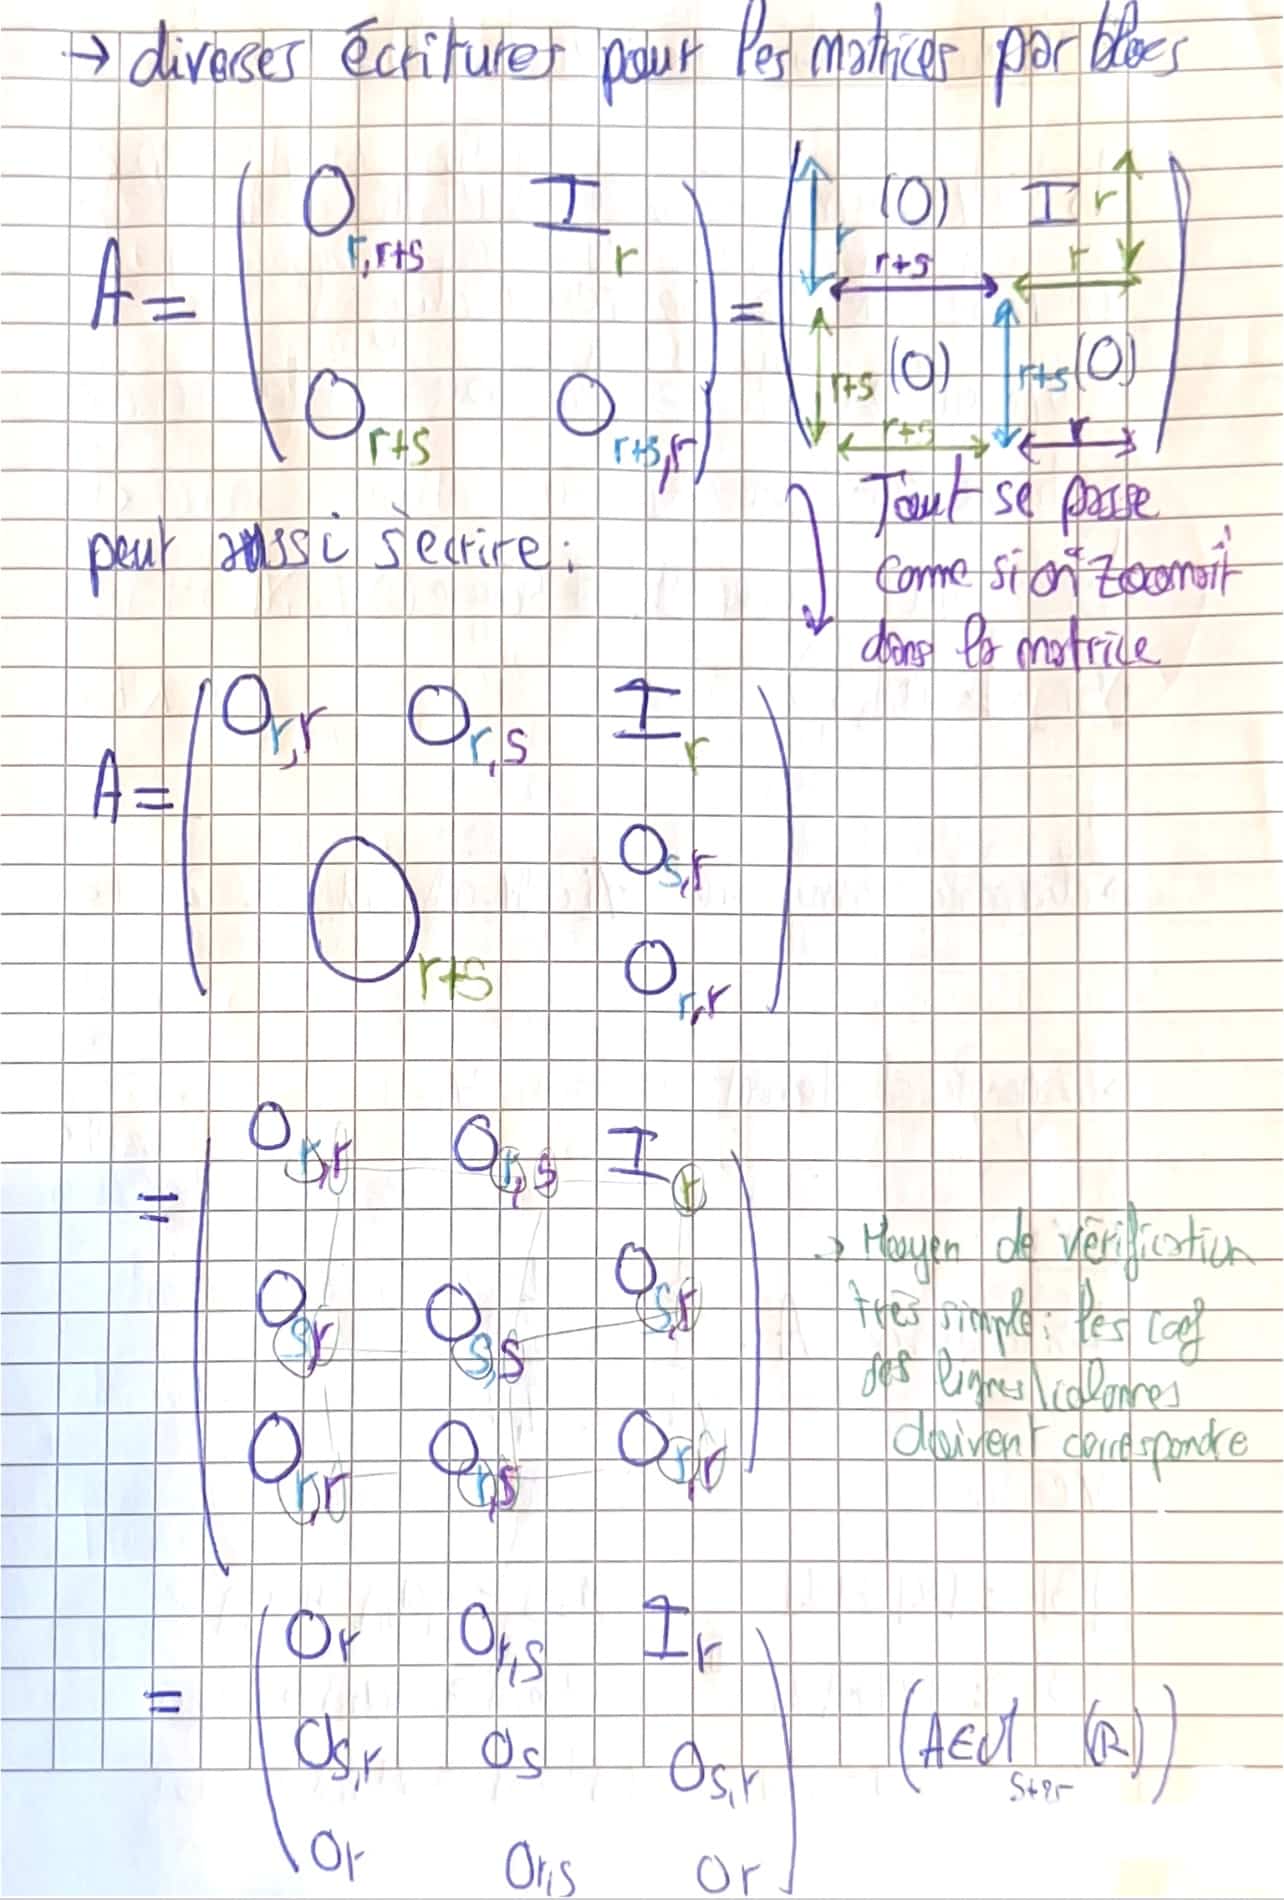 → diverses écritures pour les matrices par blocs
A = ( O_{r,r+s} I_r ) = ( r (O) r+s I r r )
( O_{r+s} O_{r+s,r} ) ( r+s (O) r+s r+s (O) r )
peut aussi s'écrire :
Tout se passe
comme si on "zoomait"
dans la matrice
A = ( O_{r,r} O_{r,s} I_r )
( O_{r+s} O_{s,r} )
( O_{r,r} )
= ( O_{r,r} O_{r,s} I_r )
( O_{s,r} O_{s,s} O_{s,r} )
( O_{r,r} O_{r,s} O_{r,r} )
→ Moyen de vérification
très simple : les coef
des lignes/colonnes
doivent correspondre
= ( O_r O_{r,s} I_r )
( O_{s,r} O_s O_{s,r} )
( O_r O_{r,s} O_r )
(A ∈ M_{s+2r} (R))